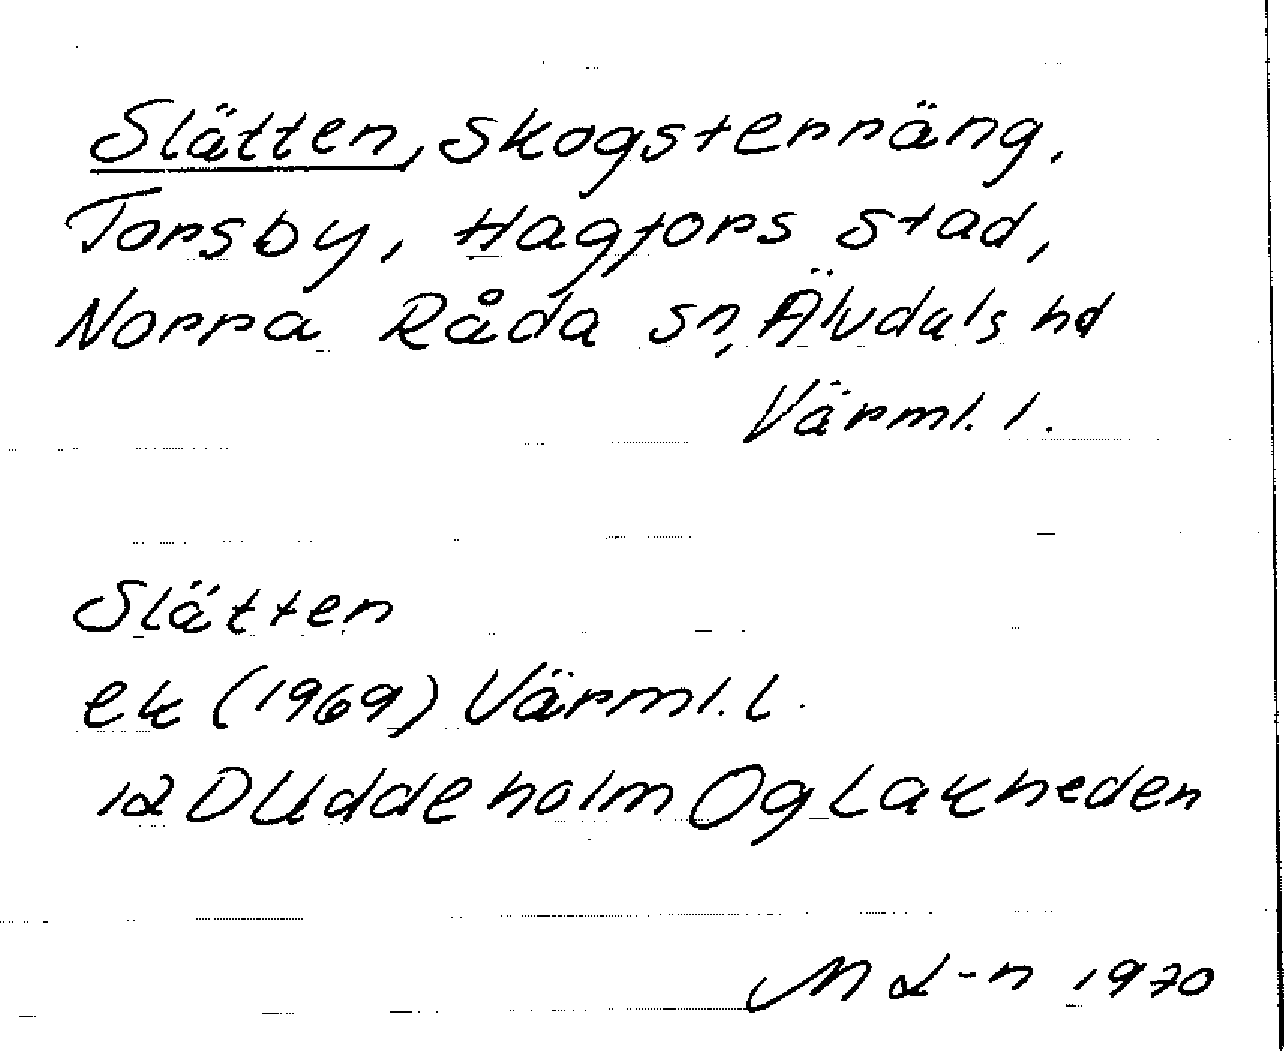 Slätten, skogsterräng,
Torsby, Hagfors stad,
Norra Råda sn, Älvdals hd
Värml. l.
Slätten
ek (1969) Värml. l.
12D Uddeholm 0g Lakheden
M L-n 1970